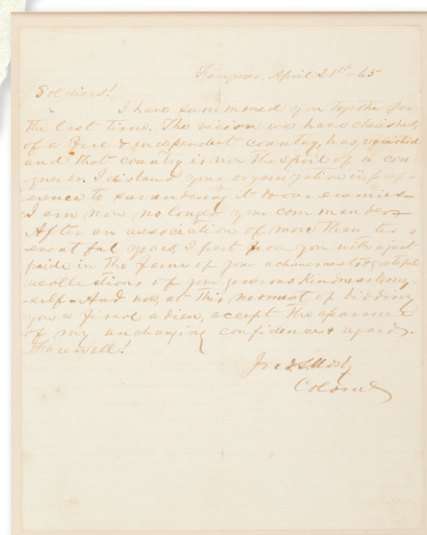 Fauquier, April 21st - 65
Soldiers!
I have summoned you together for
the last time. The vision we have cherished
of a free & independent country, has vanished
and that country is now the spoil of a con-
queror. I disband your organization in pref-
erence to surrendering it to our enemies -
I am now no longer your commander
After an association of more than two
eventful years, I part from you with a just
pride in the fame of your achievements & grateful
recollections of your generous kindness to my-
self - And now at this moment of bidding
you a final adieu, accept the assurance
of my unchanging confidence & regard.
Farewell!
Jno S Mosby
Colonel